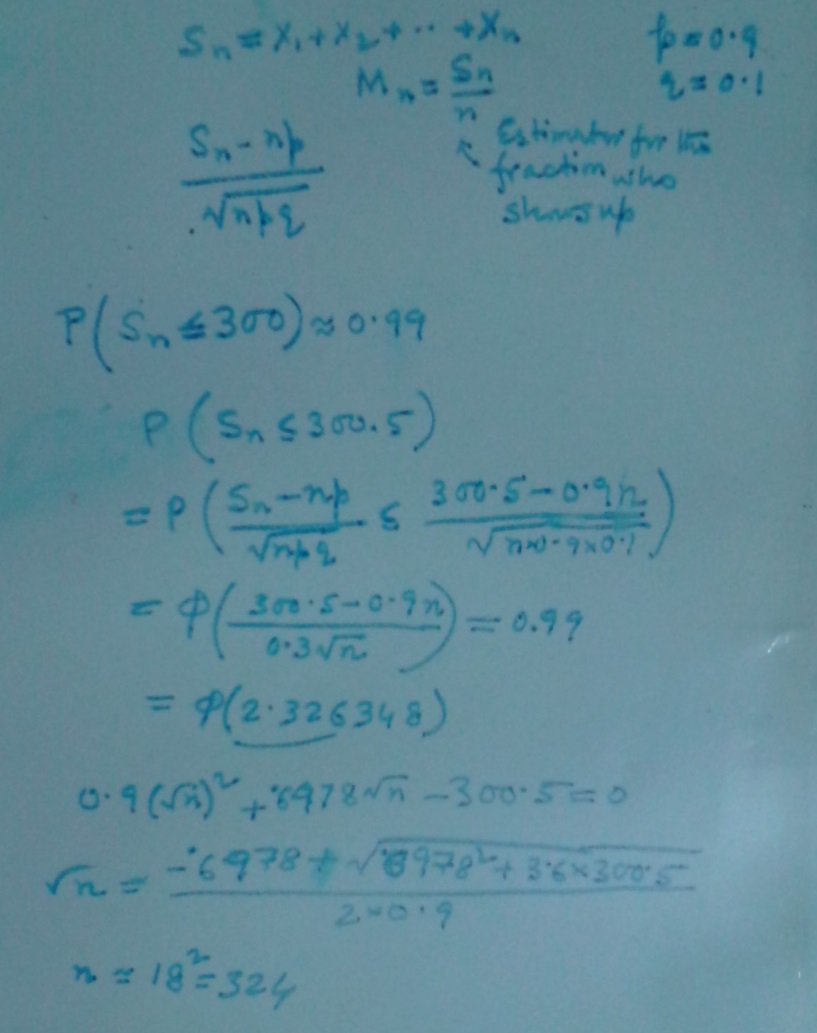 Sn = X1 + X2 + ·· + Xn p = 0.9
Mn = Sn/n q = 0.1
(Sn - np)/√npq ↖ Estimator for the
fraction who
shows up
P(Sn ≤ 300) ≈ 0.99
P(Sn ≤ 300.5)
= P((Sn - np)/√npq ≤ (300.5 - 0.9n)/√n×0.9×0.1)
= Φ((300.5 - 0.9n)/0.3√n) = 0.99
= Φ(2.326348)
0.9(√n)² + .6978√n - 300.5 = 0
√n = (-.6978 + √.6978² + 3.6×300.5)/2×0.9
n ≈ 18² = 324